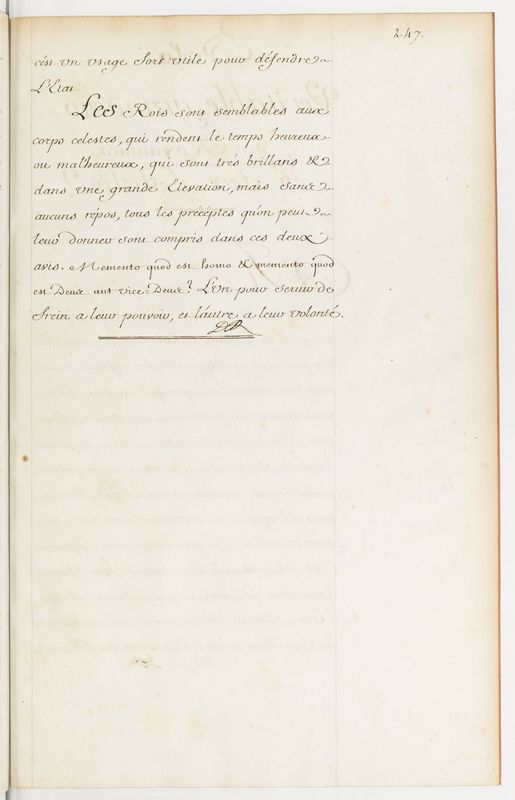 247.
c'est un usage fort utile pour défendre
L'Etat
Les Rois sont semblables aux
corps celestes, qui rendent le temps heureux
ou malheureux, qui sont trés brillans &
dans une grande Elevation, mais sans
aucuns répos, tous les précéptes qu'on peut
leur donner sont compris dans ces deux
avis. Memento quod est homo & memento quod
est Deus aut vice=Deus? L'un pour servir de
frein a leur pouvoir, et l'autre a leur volonté.